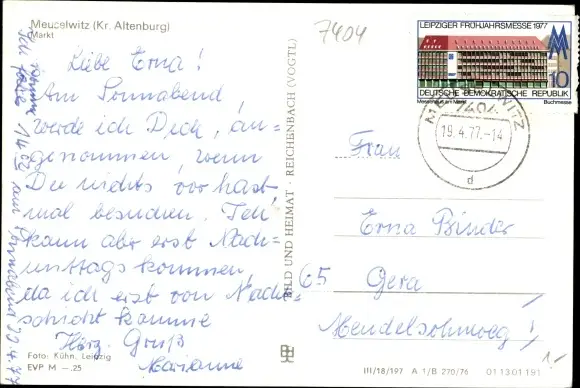 Meuselwitz (Kr. Altenburg)
Markt
7404
Liebe Erna!
Am Sonnabend,
werde ich Dich, an-
genommen, wenn
Du nichts vor hast,
mal besuchen. Ich
kann aber erst Nach=
mittags kommen,
da ich erst von Nacht-
schicht komme
Herzg. Gruß
Marianne
Foto: Kühn, Leipzig
EVP M —.25
BILD UND HEIMAT · REICHENBACH (VOGTL)
LEIPZIGER FRÜHJAHRSMESSE 1977
10
DEUTSCHE DEMOKRATISCHE REPUBLIK
Messehaus am Markt
Buchmesse
7404
19.4.77.-14
d
Frau
Erna Binder
65 Gera
Mendelsohnweg 1
III/18/197 A 1/B 270/76 01 13 01 191